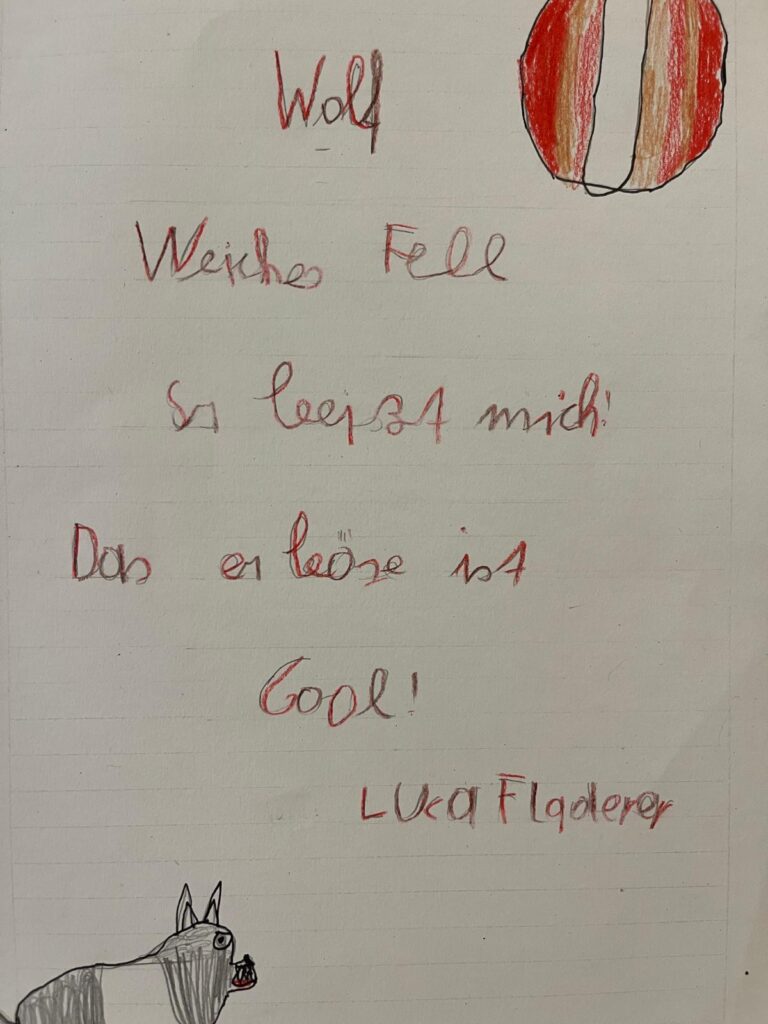 Wolf
Weiches Fell
Er beist mich!
Das er böse ist
Cool!
Luca Fladerer